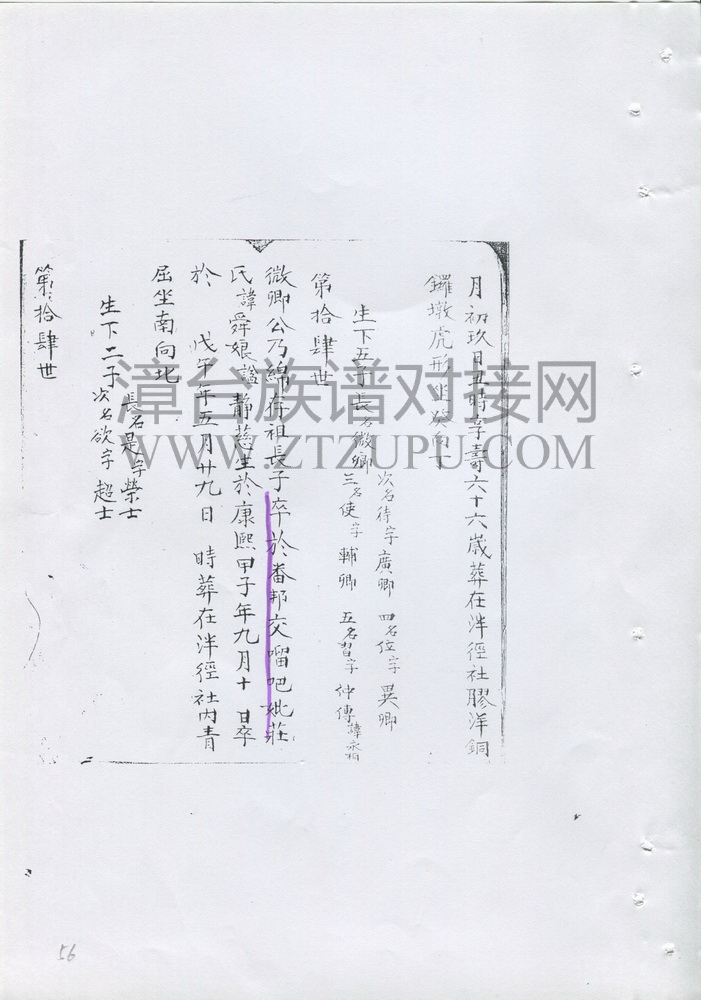 月初玖日丑時享壽六十六歲葬在泮徑社膠洋銅
鑼墩虎形坐癸向丁
生下五子長名微卿
次名待字廣卿 四名位字異卿
三名使字輔卿 五名習字仲傅諱永祖
第拾肆世
微卿公乃綿存祖長子卒於番邦交𠺕吧妣莊
氏諱舜娘謚靜慈生於康熙甲子年九月十 日卒
於 戊午年五月廿九日 時葬在泮徑社內青
屈坐南向北
生下二子
長名是字榮士
次名欲字超士
第拾肆世
漳台族谱对接网
WWW.ZTZUPU.COM
56